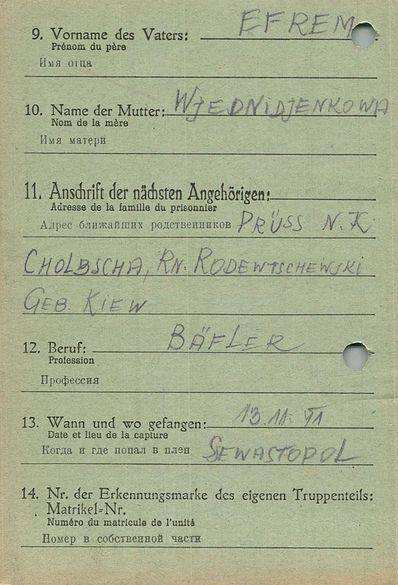 9. Vorname des Vaters: EFREM
Prénom du père
Имя отца
10. Name der Mutter: WJEDNIDJENKOWA
Nom de la mère
Имя матери
11. Anschrift der nächsten Angehörigen:
Adresse de la famille du prisonnier
Адрес ближайших родственников PRÜSS N.K
CHOLBSCHA, RN. RODEWTSCHEWSKI
GEB. KIEW
12. Beruf: BÄFLER
Profession
Профессия
13. Wann und wo gefangen: 13.11.41
Date et lieu de la capture
Когда и где попал в плен SEWASTOPOL
14. Nr. der Erkennungsmarke des eigenen Truppenteils:
Matrikel=Nr.
Numéro du matricule de l'unité
Номер в собственной части